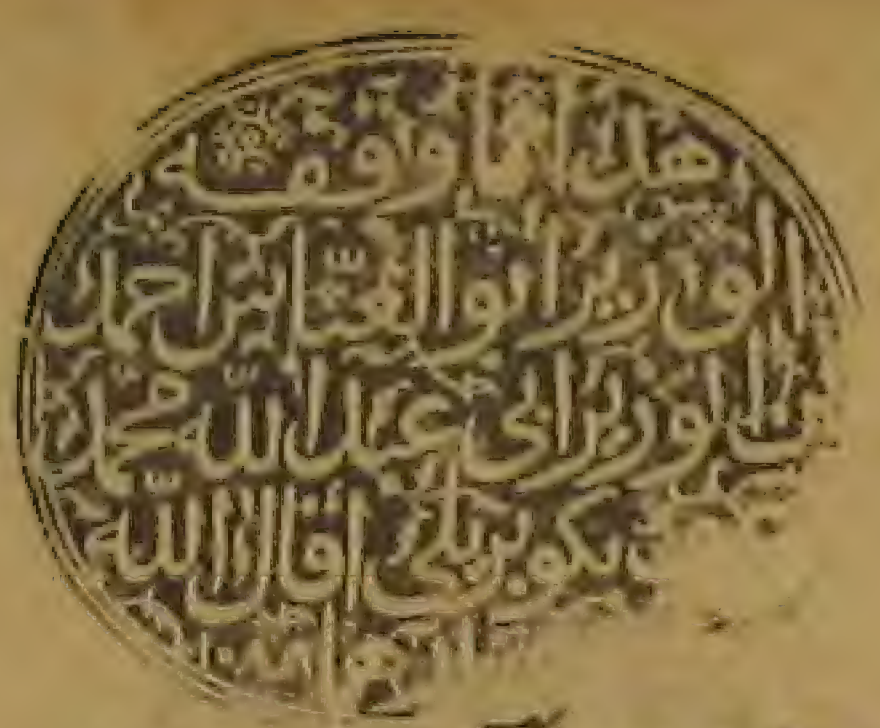 هذا ما وقفه
الوزير ابو العباس احمد
بن الوزير ابي عبد الله محمد
بكوبريلي اقال الله